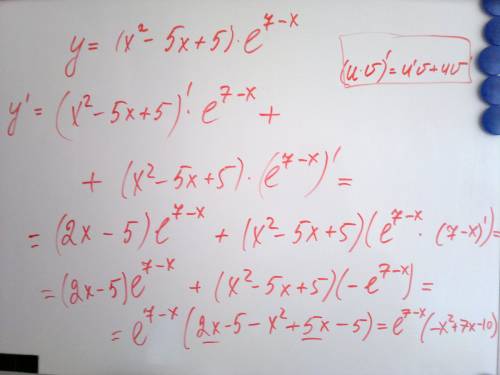 y = (x² - 5x + 5) · e^{7-x}
(u·v)' = u'v + uv'
y' = (x² - 5x + 5)' · e^{7-x} +
+ (x² - 5x + 5) · (e^{7-x})' =
= (2x - 5) e^{7-x} + (x² - 5x + 5)(e^{7-x} · (7-x)') =
= (2x - 5) e^{7-x} + (x² - 5x + 5)(-e^{7-x}) =
= e^{7-x} (2x - 5 - x² + 5x - 5) = e^{7-x} (-x² + 7x - 10)